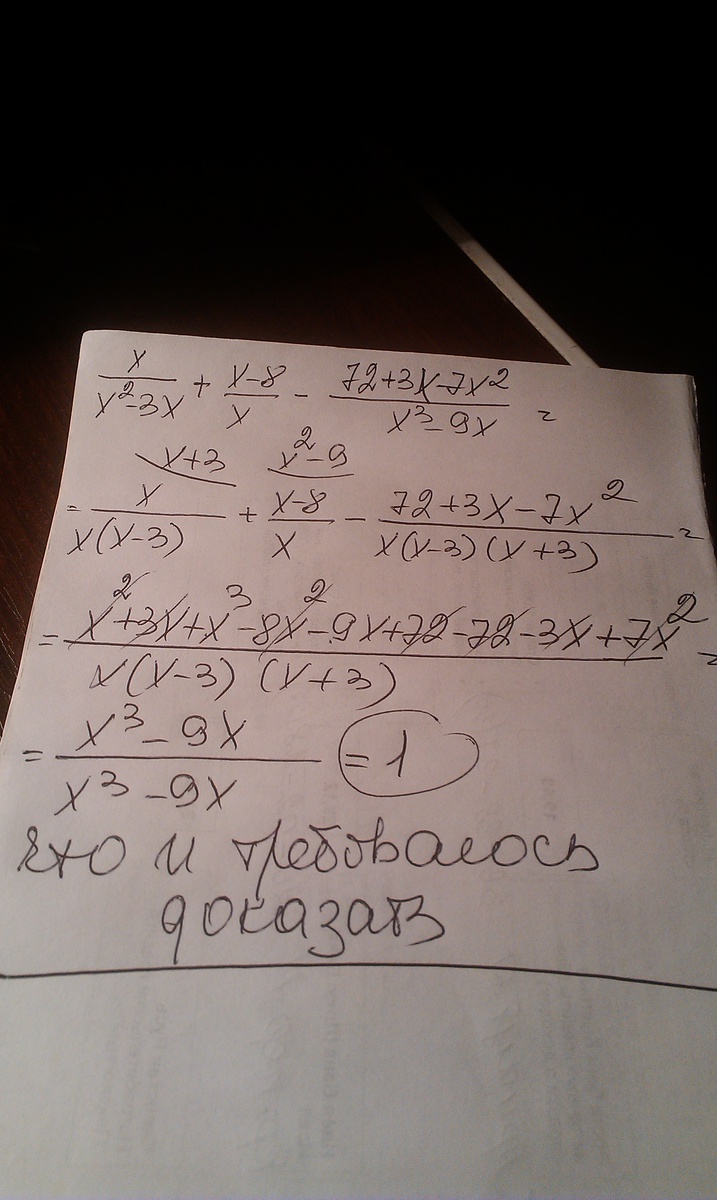 x/(x²-3x) + (x-8)/x - (72+3x-7x²)/(x³-9x) =
x+3 x²-9
= x/(x(x-3)) + (x-8)/x - (72+3x-7x²)/(x(x-3)(x+3)) =
= (x²+3x+x³-8x²-9x+72-72-3x+7x²)/(x(x-3)(x+3)) =
= (x³-9x)/(x³-9x) = 1
что и требовалось
доказать